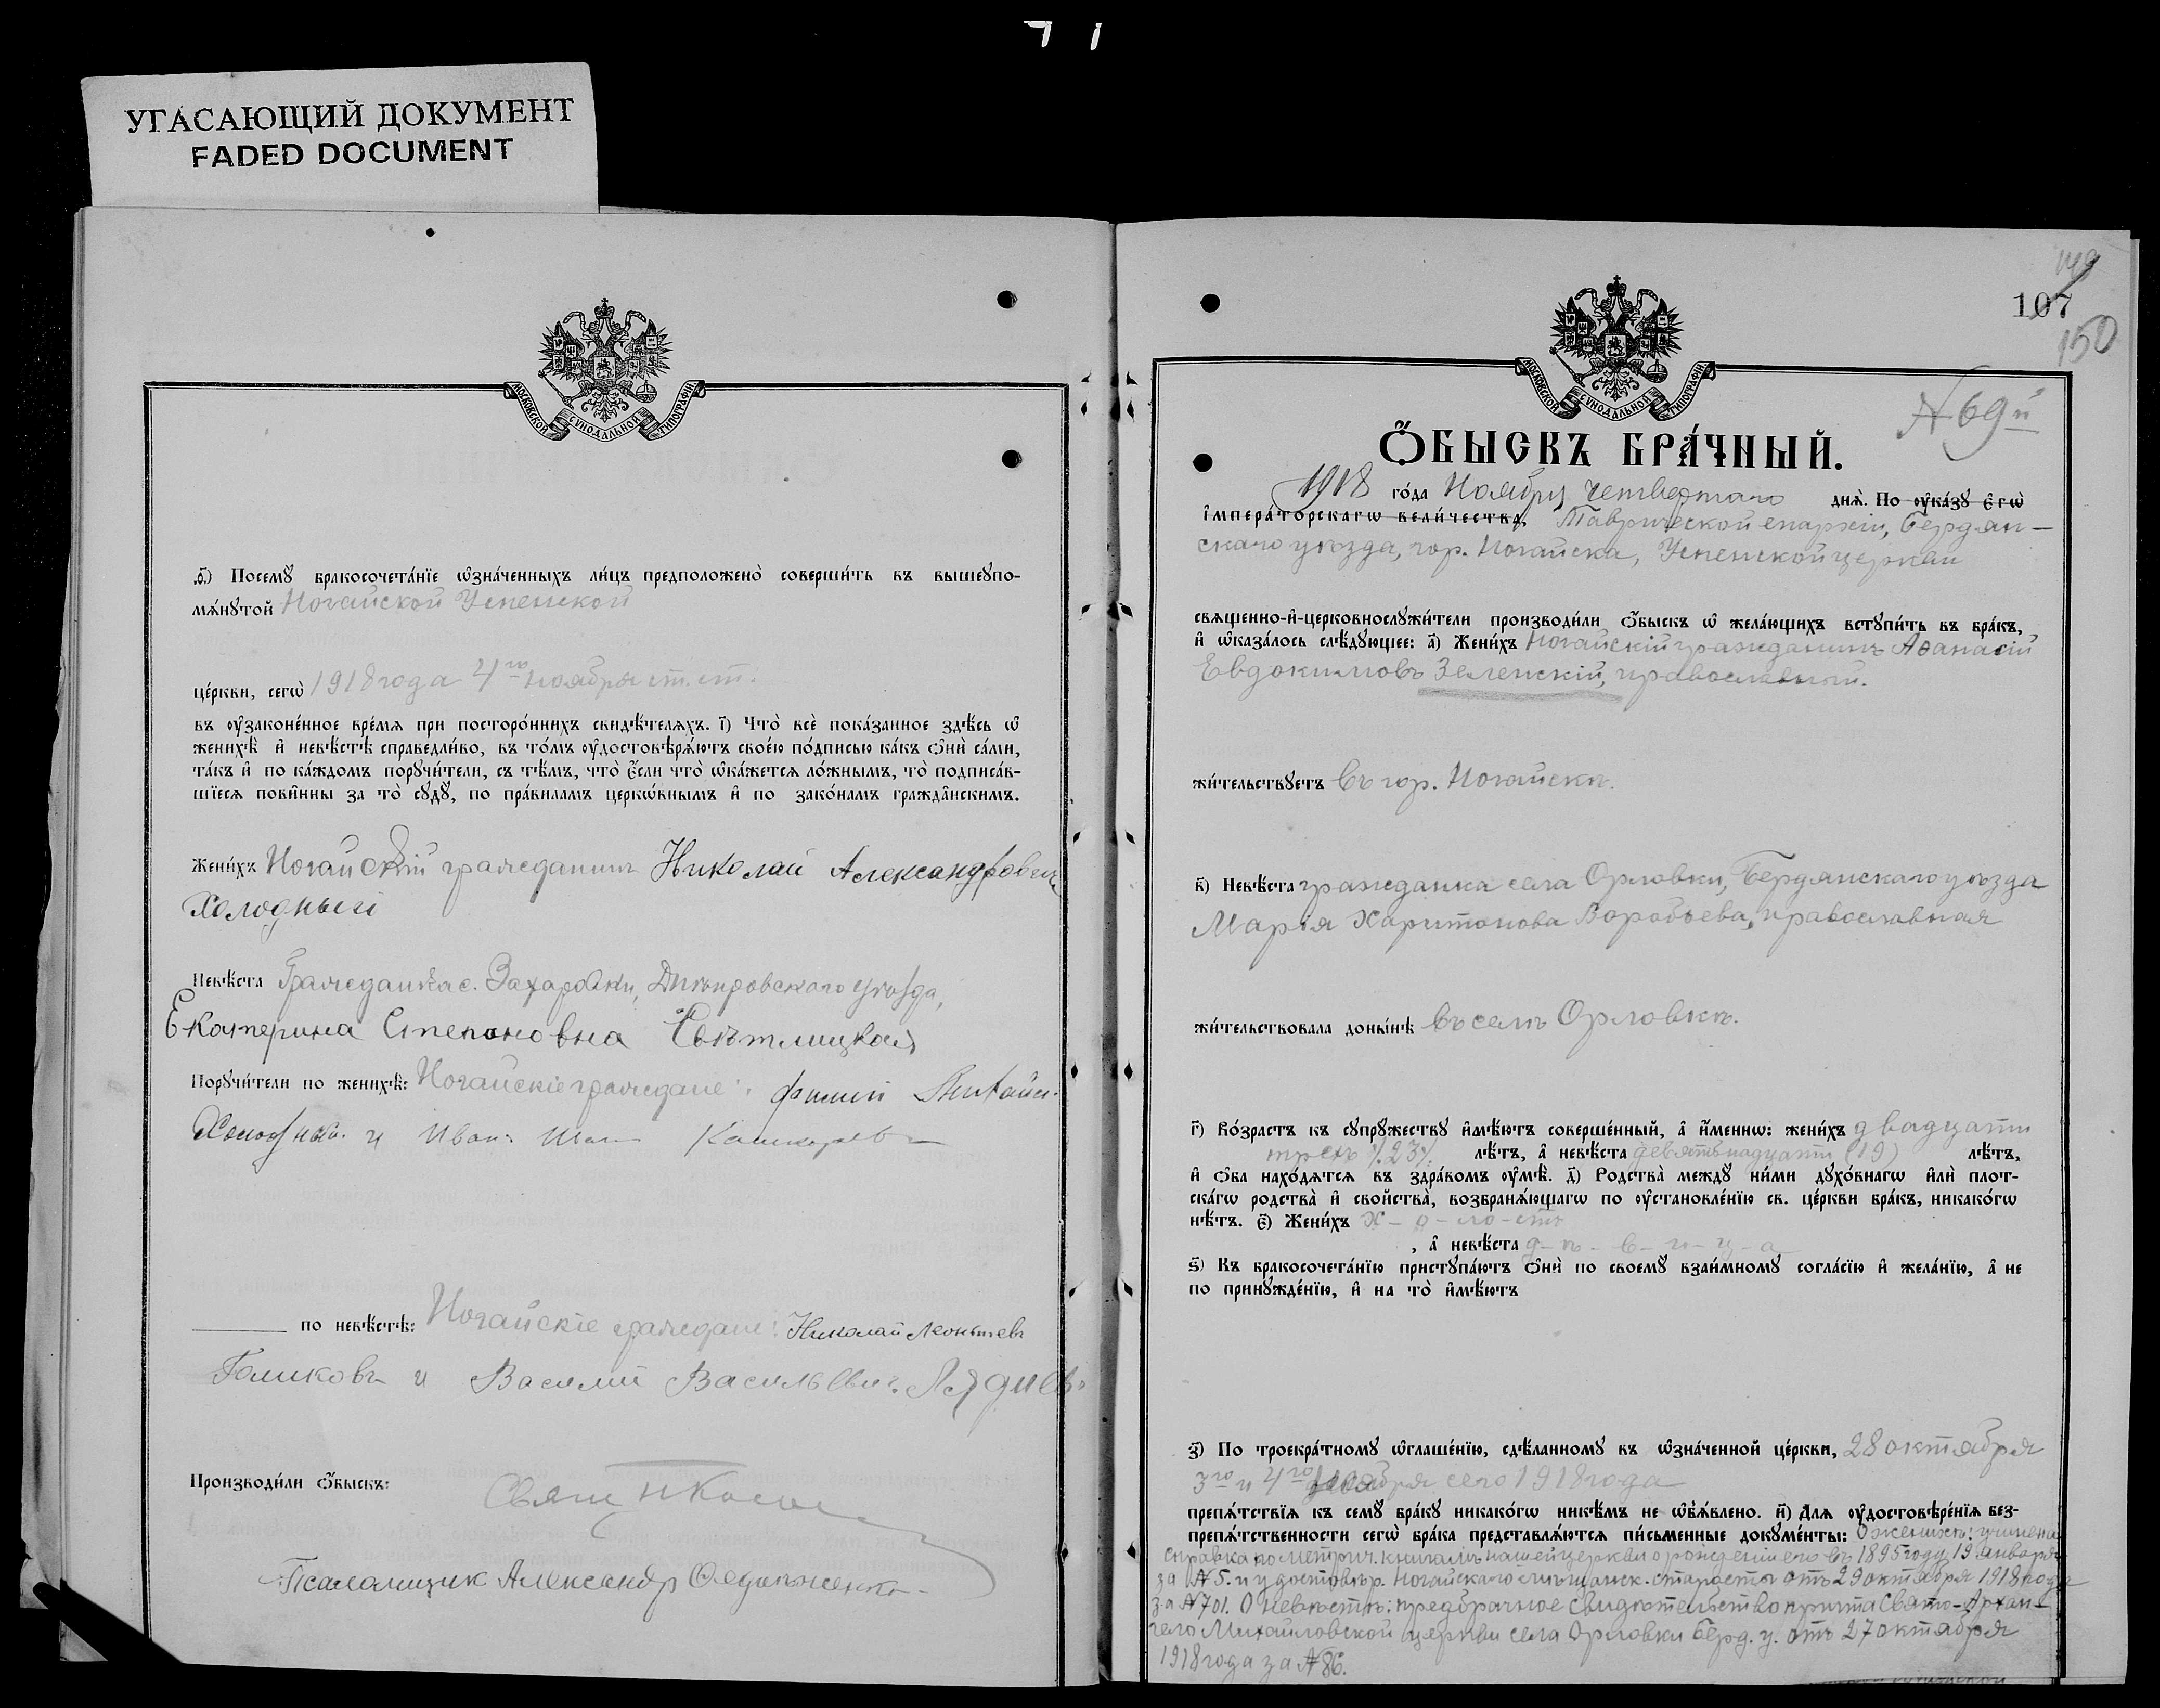 УГАСАЮЩИЙ ДОКУМЕНТ
FADED DOCUMENT
МОСКОВСКОЙ СѴНОДАЛЬНОЙ ТИПОГРАФІИ
.ѳ҃) Посемꙋ̀ бракосочета́нїе ѡ҆зна́ченныхъ ли́цъ предположено̀ соверши́ть въ вышеꙋпо-
мѧ́нꙋтой Ногайской Успенской
це́ркви, сегѡ̀ 1918 года 4го ноября ст. ст.
въ ᲂу҆законе́нное вре́мѧ при посторо́ннихъ свидѣ́телѧхъ. і҃) Что̀ всѐ пока́занное здѣ́сь ѡ҆
женихѣ̀ и҆ невѣ́стѣ справедли́во, въ то́мъ ᲂу҆достовѣрѧ́ютъ свое́ю по́дписью ка́къ ѻ҆нѝ са́ми,
та́къ и҆ по ка́ждомъ порꙋчи́тели, съ тѣ́мъ, что̀ є҆́сли что̀ ѡ҆ка́жетсѧ ло́жнымъ, то̀ подписа́в-
шїесѧ пови́нны за то̀ сꙋдꙋ̀, по пра́виламъ церкѡ́внымъ и҆ по зако́намъ гражда́нскимъ.
Жени́хъ Ногайскій гражданинъ Николай Александровичъ
Холодный
Невѣ́ста Гражданка с. Захаровки, Днѣпровскаго уѣзда,
Екатерина Степановна Свѣтлицкая
Порꙋчи́тели по женихѣ̀: Ногайскіе граждане:
Холодный и Иван
по невѣ́стѣ: Ногайскіе граждане: Николай Леонтьевъ
Голиковъ и Василий Васильевич
Производи́ли ѻ҆́быскъ: Свящ.
Псаломщик Александр
149
107
150
№ 69й
МОСКОВСКОЙ СѴНОДАЛЬНОЙ ТИПОГРАФІИ
Ѻ҆́БЫСКЪ БРА́ЧНЫЙ.
1918 го́да Ноября четвертаго днѧ̀. По ᲂу҆ка́зꙋ Є҆гѡ̀
І҆мпера́торскагѡ Вели́чества, Таврической епархіи, Бердян-
скаго уѣзда, гор. Ногайска, Успенской церкви
свѧщенно-и҆-церковнослꙋжи́тели производи́ли ѻ҆́быскъ ѡ҆ жела́ющихъ встꙋпи́ть въ бра́къ,
и҆ ѡ҆каза́лось слѣ́дꙋющее: а҃) Жени́хъ Ногайскій гражданинъ Аѳанасій
Евдокимовъ Зеленскій, православный.
жи́тельствꙋетъ въ гор. Ногайскѣ.
в҃) Невѣ́ста гражданка села Орловки, Бердянскаго уѣзда
Марія Харитонова Воробьева, православная
жи́тельствовала доны́нѣ въ селѣ Орловкѣ.
г҃) Во́зрастъ къ сꙋпрꙋ́жествꙋ и҆мѣ́ютъ соверше́нный, а҆ и҆́меннѡ: жени́хъ двадцати
трехъ /23/ лѣ́тъ, а҆ невѣ́ста девятьнадцати (19) лѣ́тъ,
и҆ ѻ҆́ба нахо́дѧтсѧ въ здра́вомъ ᲂу҆мѣ̀. д҃) Родства̀ междꙋ̀ ни́ми дꙋхо́внагѡ и҆лѝ плот-
ска́гѡ родства̀ и҆ сво́йства̀, возбранѧ́ющагѡ по ᲂу҆становле́нїю св. це́ркви бра́къ, никако́гѡ
нѣ́тъ. є҃) Жени́хъ х-о-ло-стъ
, а҆ невѣ́ста д-ѣ-в-и-ц-а
ѕ҃) Къ бракосочета́нїю пристꙋпа́ютъ ѻ҆нѝ по своемꙋ̀ взаи́мномꙋ согла́сїю и҆ жела́нїю, а҆ не
по принꙋжде́нїю, и҆ на то̀ и҆мѣ́ютъ
з҃) По троекра́тномꙋ ѡ҆глаше́нїю, сдѣ́ланномꙋ въ ѡ҆зна́ченной це́ркви, 28 октября
3го и 4го ноября сего 1918 года
препѧ́тствїѧ къ семꙋ̀ бра́кꙋ никако́гѡ никѣ́мъ не ѡ҆б̾ѧ́влено. и҃) Длѧ ᲂу҆достовѣре́нїѧ без-
препѧ́тственности сегѡ̀ бра́ка представлѧ́ютсѧ пи́сьменные докꙋме́нты: О женихѣ: учинена
справка по метрич. книгамъ нашей церкви о рожденіи его въ 1895 году 19 января
за № 5. и удостовѣр. Ногайскаго мѣщанск. старосты отъ 29 октября 1918 года
за № 701. О невѣстѣ: предбрачное свидѣтельство причта Свято-Архан-
гело Михайловской церкви села Орловки Берд. у. отъ 27 октября
1918 года за № 86.